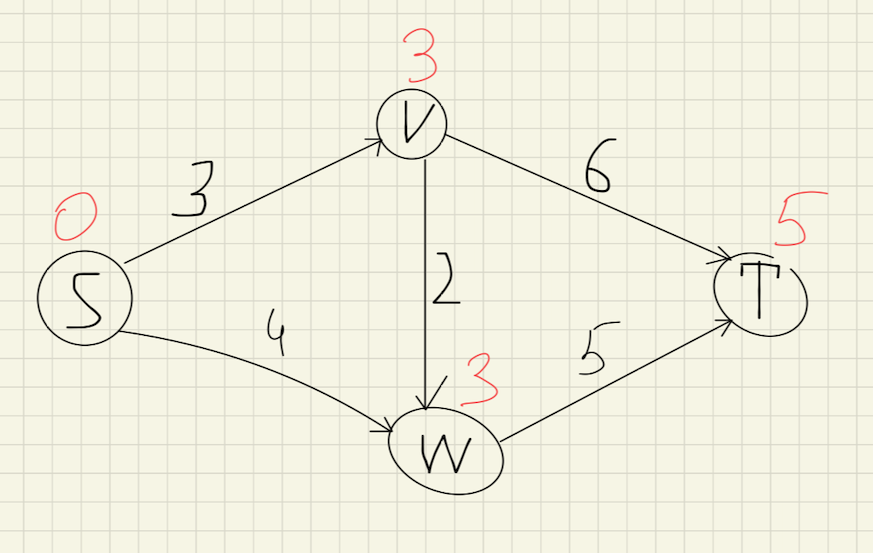 3
V
3
6
0
5
S
2
T
4
5
3
W